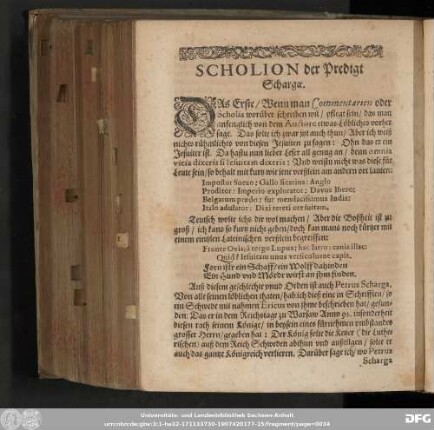 SCHOLION der Predigt
Schargæ.
DAs Erste/ Wenn man Commentarien oder
Scholia worüber schreiben wil/ pfleget sein/ das man
anfenglich von dem Authore etwas Löbliches vorher
sage. Das solte ich zwar jtzt auch thun/ Aber ich weiß
nichts rühmliches von diesen Jesuiten zu sagen: Ohn das er ein
Jesuiter ist. Da hastu nun lieber Leser all genug an/ denn omnia
vitia dixeris si Iesuitam dixeris: Und wiewol nicht was diese für
Leute sein/ so behalt mit kurtz wie jene versslein am andern ort lauten:
Impostor Sueco: Gallo sicarius: Anglo
Proditor: Imperio explorator: Davus Ibero:
Belgarum prædo: fur mendacissimus Indis:
Italo adulator: Dixi teretî Iesuitam.
Teutsch wolte ichs dir wol machen/ Aber die Boßheit ist zu
groß/ ich kans so kurtz nicht geben/ doch kan mans noch kürtzer mit
einem einzlen Lateinischen versslein begreiffen:
Fronte Ovis; à tergo Lupus; hac latro: canis illac:
Quid? Iesuitam unus versiculusne capit.
Forn ist er ein Schaff/ ein Wolff dahinden
Ein Hund und Mörder wirst an jhm finden.
Auß diesem geschlechte und Orden ist auch Petrus Scharga.
Von alle seinen löblichen thaten/ hab ich diese eine in Schrifften/ so
ein Schwede mit nahmen Ericus von jhme beschrieben hat/ gefun-
den: Das er in dem Reichstage zu Warsaw Anno 91. insonderheit
diesen rath seinem Könige/ in beysein eines fürnehmen umbstandes
grosser Herrn/ gegeben hat: Der König solte die Ketzer (die Luthe-
rischen) auß dem Reich Schweden abthun und außtilgen/ solte er
auch das gantze Königreich verlieren. Darüber sage ich/ wo Petrus
Scharga
Universitäts- und Landesbibliothek Sachsen-Anhalt
urn:nbn:de:gbv:3:1-ha32-171133730-1997420177-15/fragment/page=0034